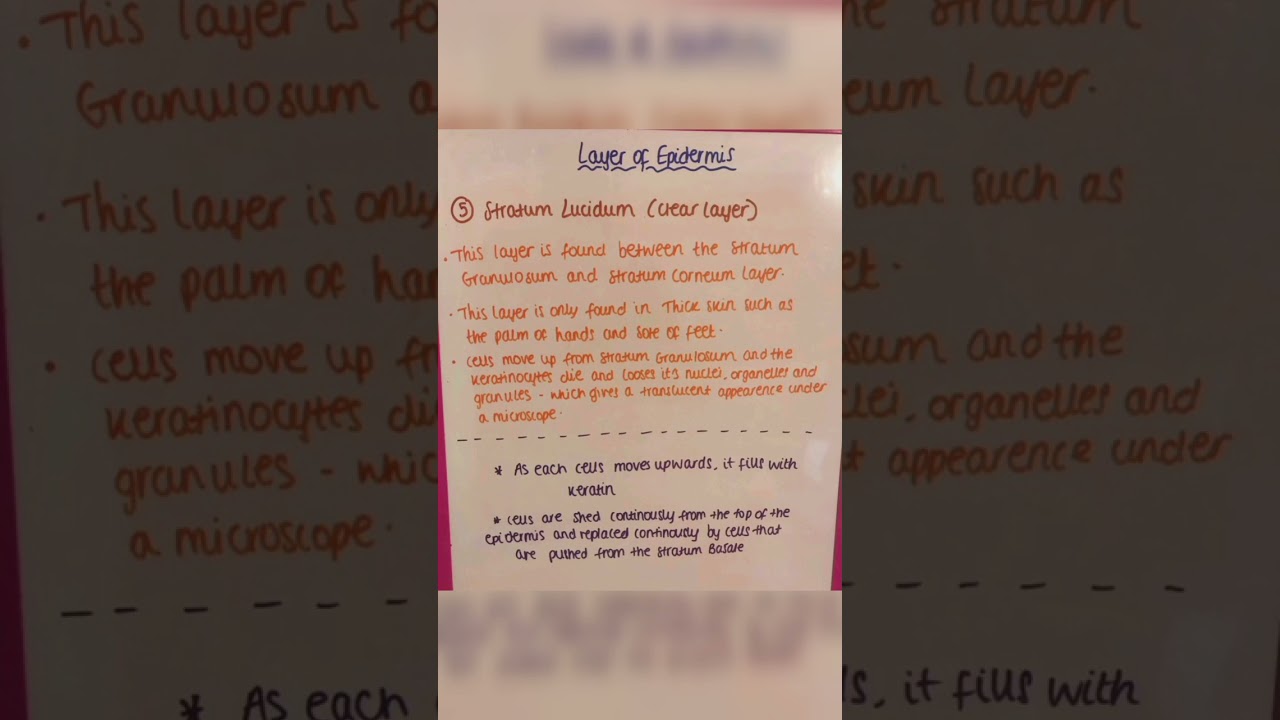 Layer of Epidermis
⑤ Stratum Lucidum (clear layer)
• This layer is found between the Stratum
Granulosum and Stratum Corneum Layer.
• This layer is only found in Thick skin such as
the palm of hands and sole of feet.
• Cells move up from Stratum Granulosum and the
keratinocytes die and looses it's nuclei, organelles and
granules - which gives a translucent appearence under
a microscope.
* As each cells moves upwards, it fills with
keratin
* Cells are shed continously from the top of the
epidermis and replaced continously by cells that
are pushed from the Stratum Basale